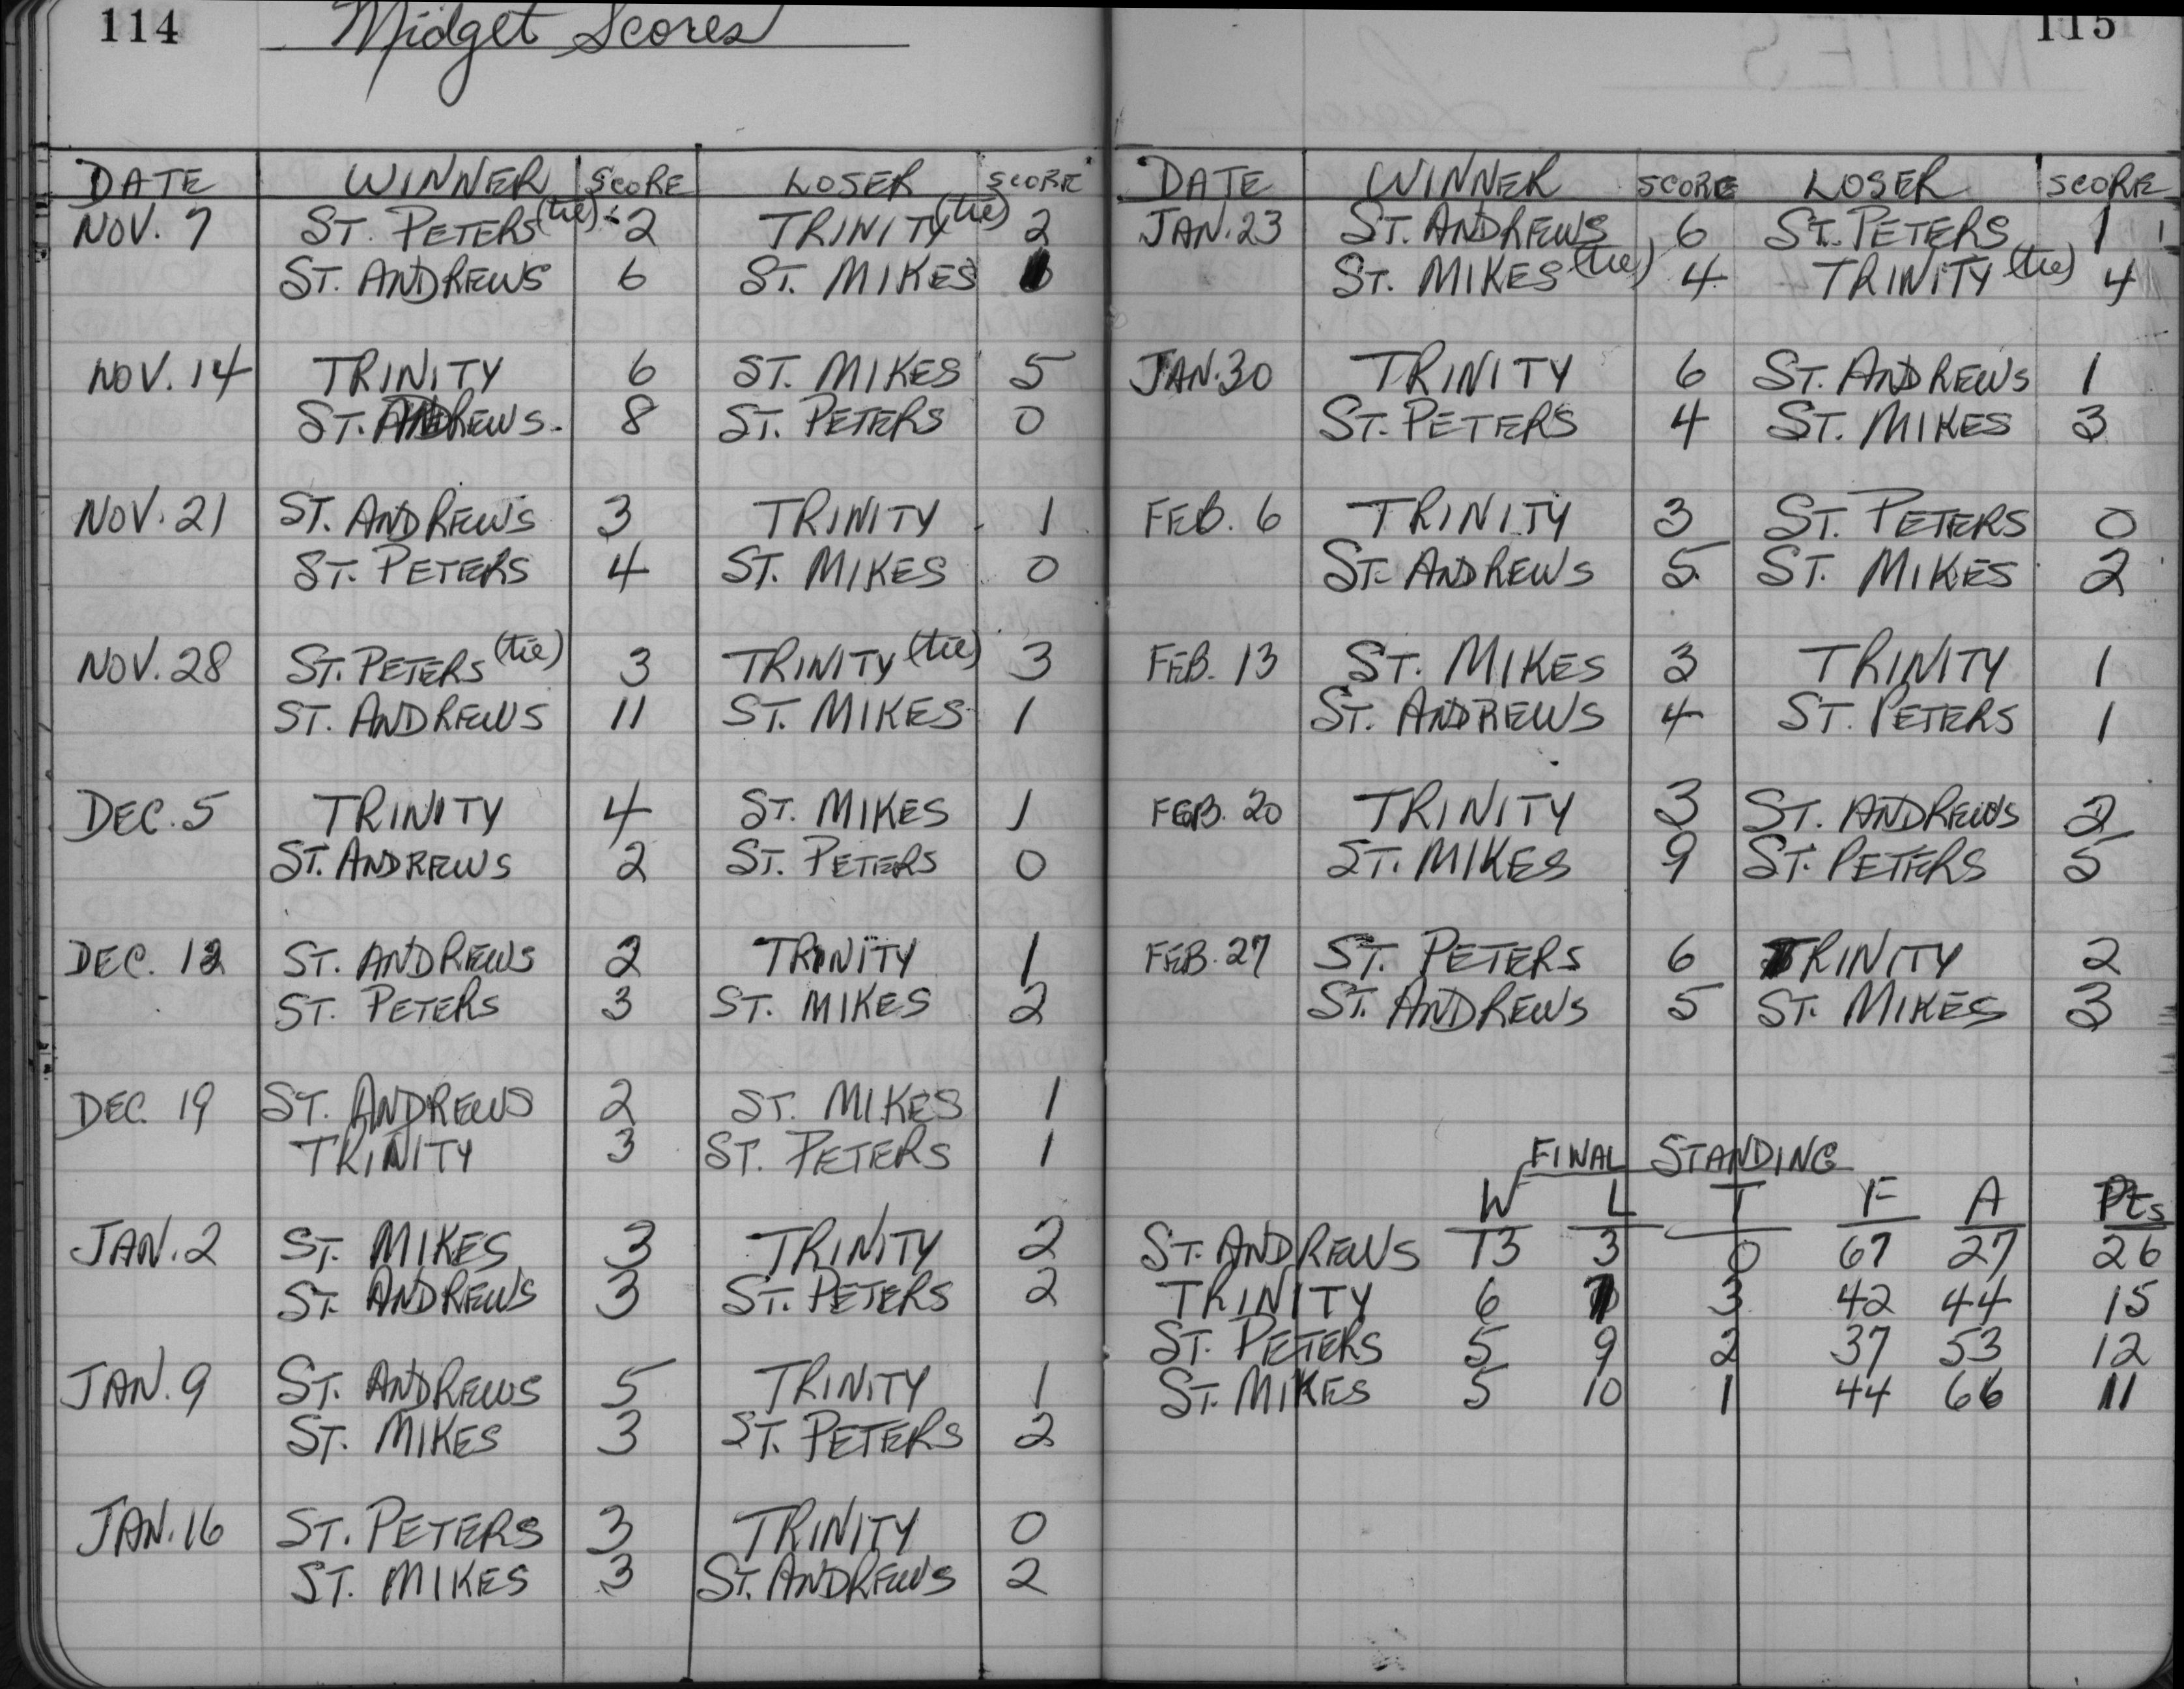 114
Midget Scores
DATE WINNER SCORE LOSER SCORE
NOV. 7 ST. PETERS (tie) 2 TRINITY (tie) 2
ST. ANDREWS 6 ST. MIKES
NOV. 14 TRINITY 6 ST. MIKES 5
ST. ANDREWS 8 ST. PETERS 0
NOV. 21 ST. ANDREWS 3 TRINITY 1
ST. PETERS 4 ST. MIKES 0
NOV. 28 ST. PETERS (tie) 3 TRINITY (tie) 3
ST. ANDREWS 11 ST. MIKES 1
DEC. 5 TRINITY 4 ST. MIKES 1
ST. ANDREWS 2 ST. PETERS 0
DEC. 12 ST. ANDREWS 2 TRINITY 1
ST. PETERS 3 ST. MIKES 2
DEC. 19 ST. ANDREWS 2 ST. MIKES 1
TRINITY 3 ST. PETERS 1
JAN. 2 ST. MIKES 3 TRINITY 2
ST. ANDREWS 3 ST. PETERS 2
JAN. 9 ST. ANDREWS 5 TRINITY 1
ST. MIKES 3 ST. PETERS 2
JAN. 16 ST. PETERS 3 TRINITY 0
ST. MIKES 3 ST. ANDREWS 2
115
DATE WINNER SCORE LOSER SCORE
JAN. 23 ST. ANDREWS 6 ST. PETERS 1
ST. MIKES (tie) 4 TRINITY (tie) 4
JAN. 30 TRINITY 6 ST. ANDREWS 1
ST. PETERS 4 ST. MIKES 3
FEB. 6 TRINITY 3 ST. PETERS 0
ST. ANDREWS 5 ST. MIKES 2
FEB. 13 ST. MIKES 3 TRINITY 1
ST. ANDREWS 4 ST. PETERS 1
FEB. 20 TRINITY 3 ST. ANDREWS 2
ST. MIKES 9 ST. PETERS 5
FEB. 27 ST. PETERS 6 TRINITY 2
ST. ANDREWS 5 ST. MIKES 3
FINAL STANDING
W L T F A Pts
ST. ANDREWS 13 3 0 67 27 26
TRINITY 6 7 3 42 44 15
ST. PETERS 5 9 2 37 53 12
ST. MIKES 5 10 1 44 66 11